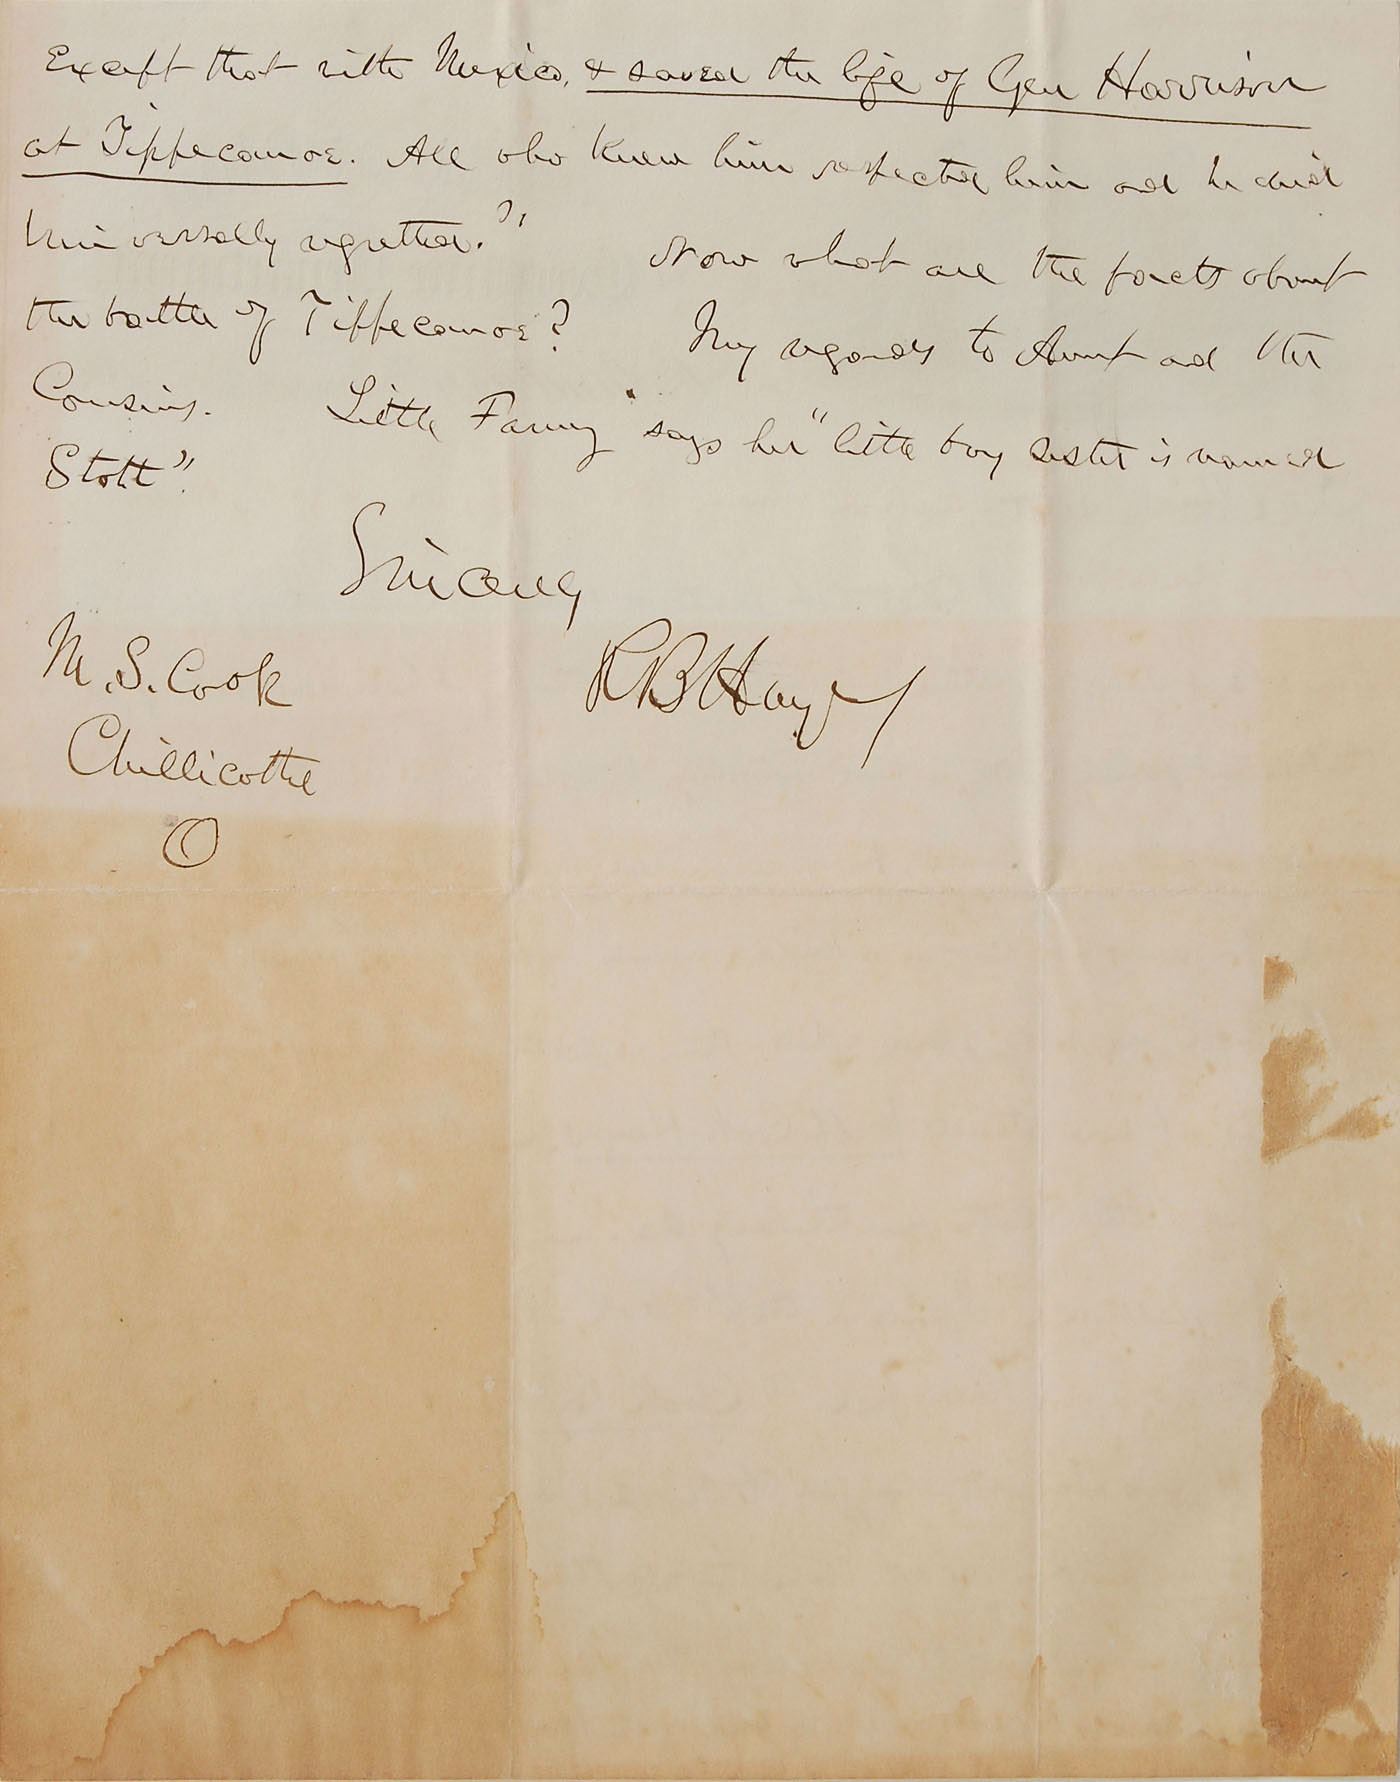 Except that with Mexico, & saved the life of Gen Harrison
at Tippecanoe. All who knew him respected him and he died
universally regretted.",
Now what are the facts about
the battle of Tippecanoe?
My regards to Aunt and the
Cousins.
Little Fanny says her "little boy sister is named
Stott".
Sincerely
R B Hayes
M. S. Cook
Chillicothe
O